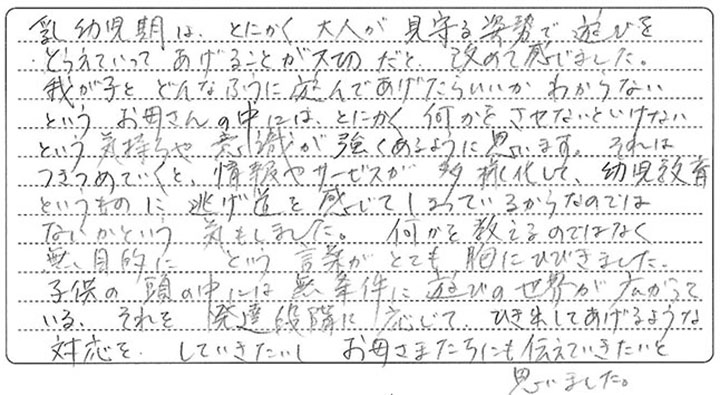 乳幼児期は、とにかく大人が見守る姿勢で遊びを
とらえていってあげることが大切だと、改めて感じました。
我が子とどんなふうに遊んであげたらいいかわからない
というお母さんの中には、とにかく何かをさせないといけない
という気持ちや意識が強くあるように思います。それは
つきつめていくと、情報やサービスが多様化して、幼児教育
というものに逃げ道を感じてしまっているからなのでは
ないかという気もしました。何かを教えるのではなく
無目的に という言葉がとても胸にひびきました。
子供の頭の中には無条件に遊びの世界が広がって
いる、それを発達段階に応じて、ひき出してあげるような
対応を、していきたいし お母さまたちにも伝えていきたいと
思いました。